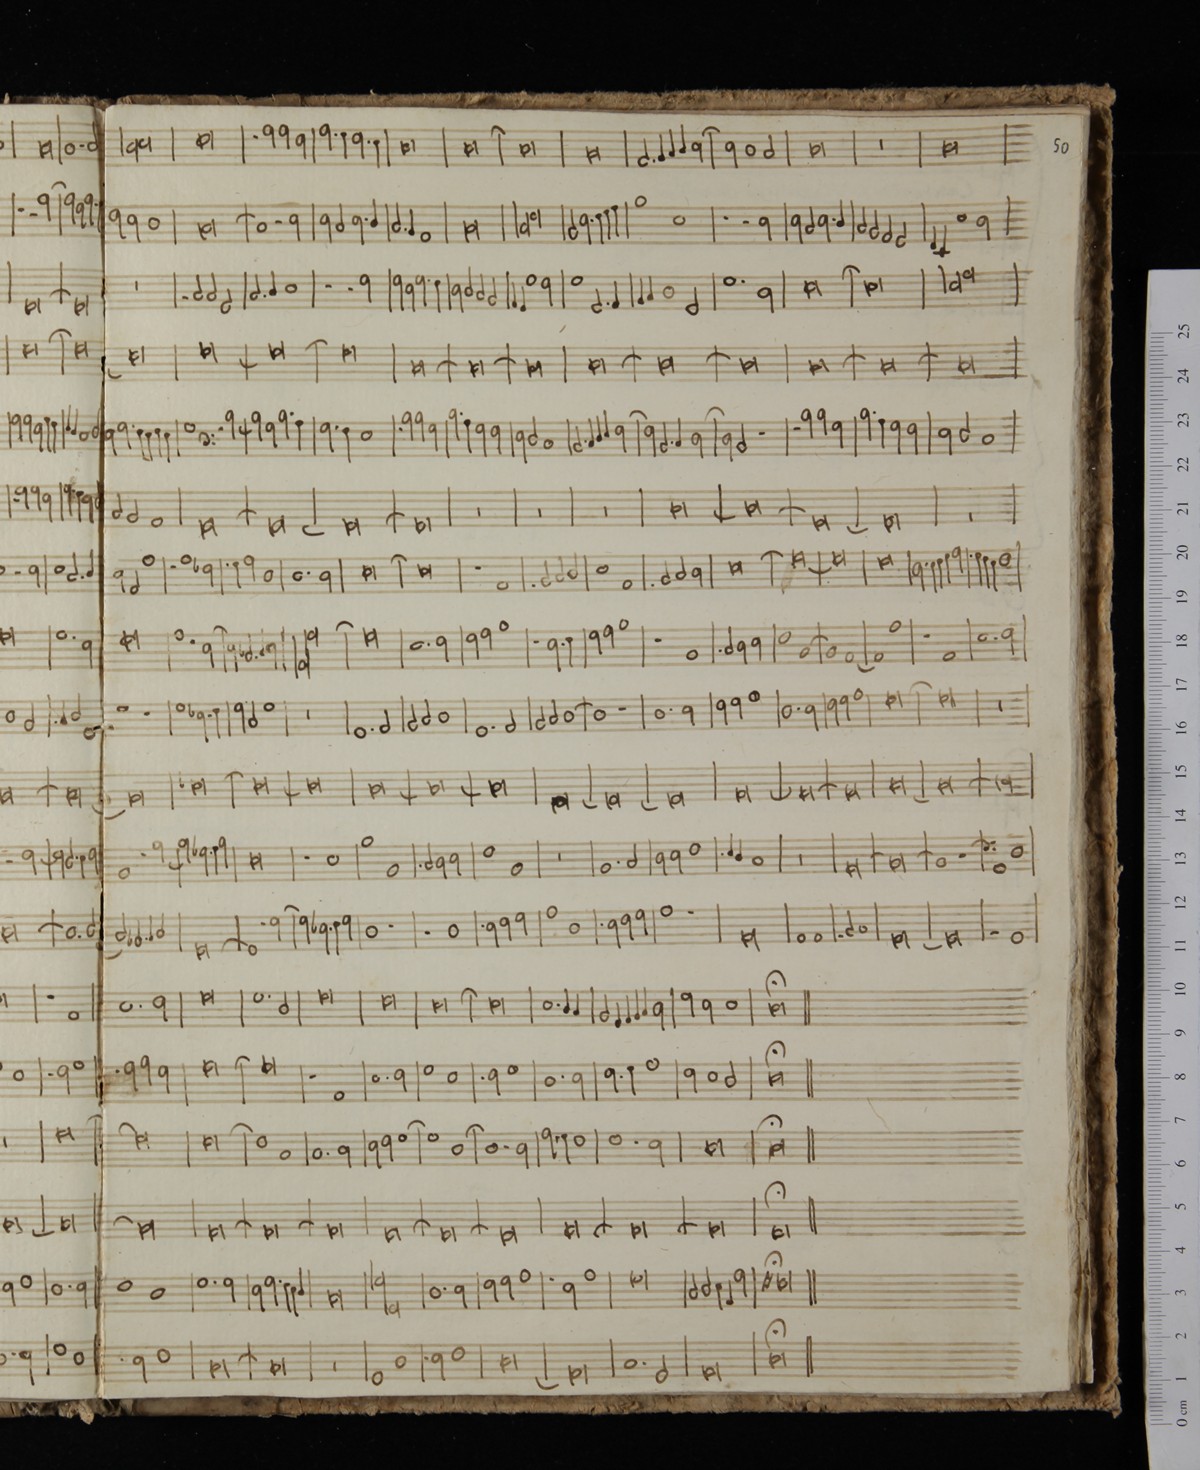 50
25
24
23
22
21
20
19
18
17
16
15
14
13
12
11
10
9
8
7
6
5
4
3
2
1
0 cm